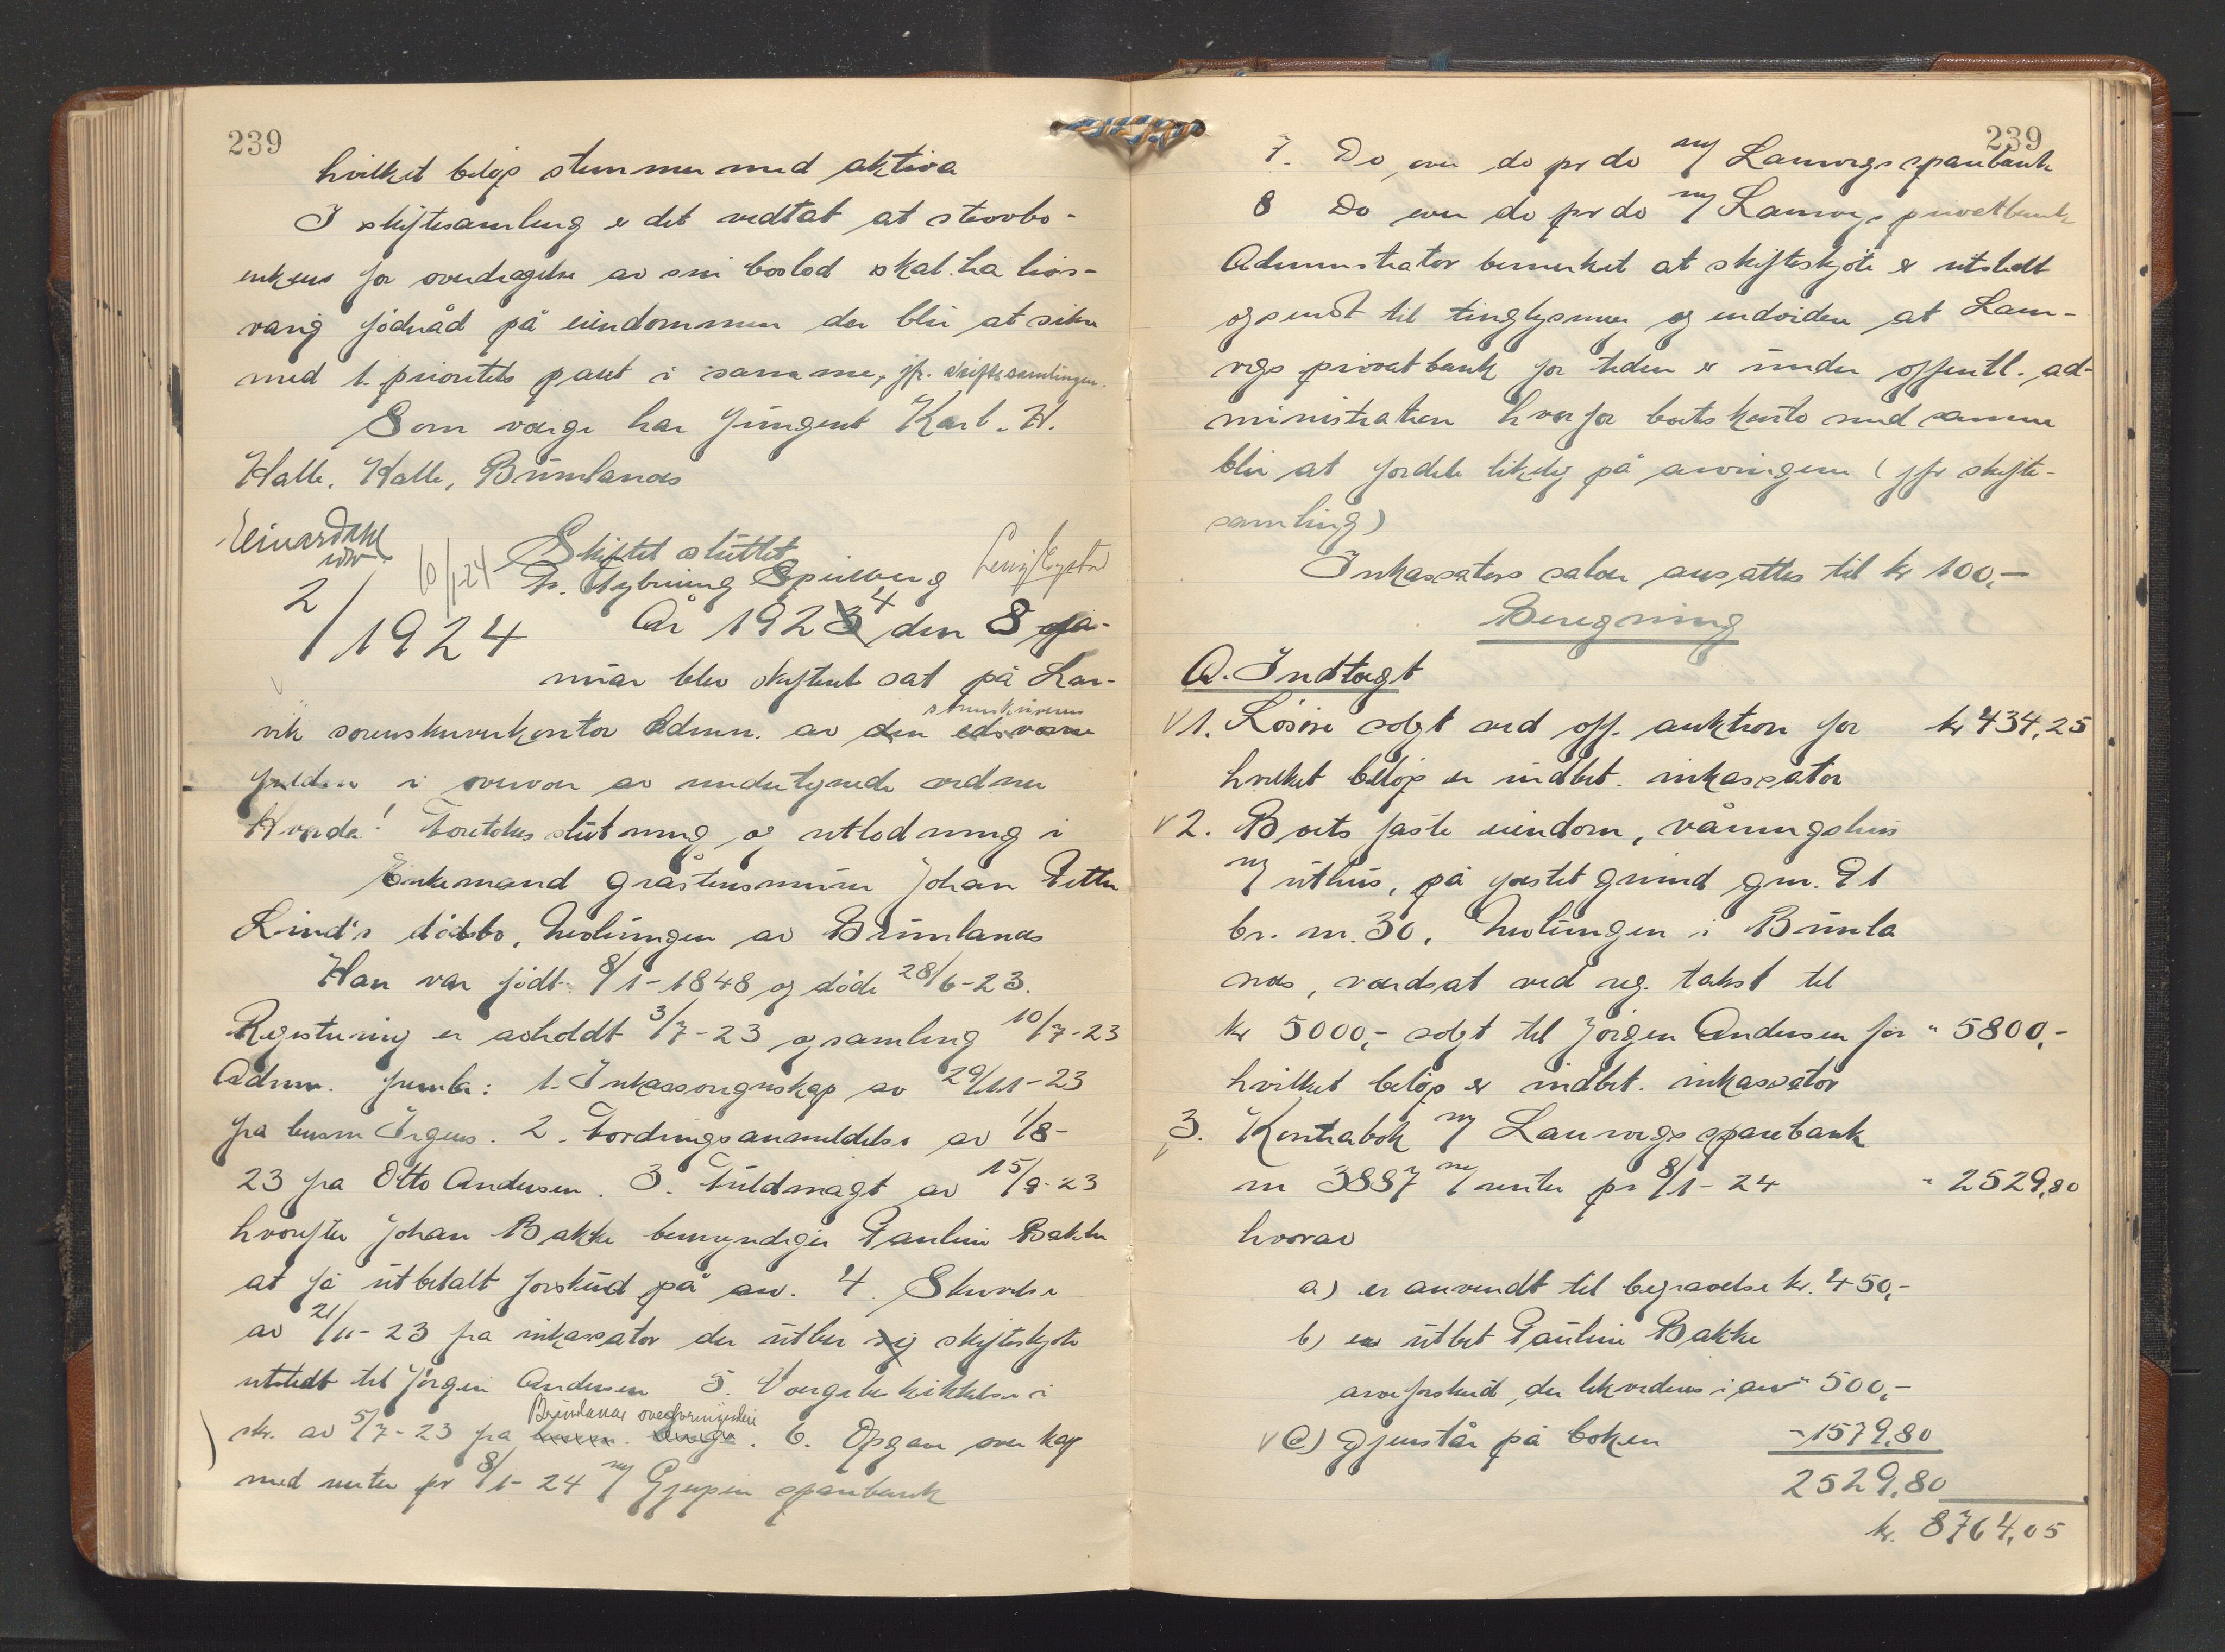 239
hvilket beløp stemmer med aktiva
I skiftesamling er det vedtat at stervbo-
enken for overdragelse av sin boslod skal ha livs-
varig føderåd på eiendommen der blir at sikre
med 1. prioritets pant i samme, jfr. skiftesamlingen.
Som verge har fungert Karl. H.
Halle, Halle, Brunlanæs
Einar Dahl
Skiftet sluttet
10/1-24
2/1924
År 1924 den 8 ja-
nuar blev skifteret sat på Lar-
vik sorenskriverkontor Admin. av sorenskriverens
fuldm i overvær av undertegnede vidner
Hvorda! Foretokes slutning og utlodning i
Enkemand gråstensmurer Johan Petter
Lind's dødsbo, Nevlungen av Brunlanæs
Han var født 8/1-1848 og døde 28/6-23.
Registrering er avholdt 3/7-23 og samling 10/7-23
Admin. fremla: 1. Inkassoregnskap av 29/11-23
fra lensm Irgens. 2. Fordringsanmeldelse av 1/8-
23 fra Otto Andersen. 3. Fuldmagt av 15/9-23
hvorefter Johan Bakke bemyndiger Pauline Bakke
at få utbetalt forskud på arv. 4. Skrivelse
av 21/11-23 fra inkassator der utber sig skifteskjøte
utstedt til Jørgen Andersen 5. Vergebeskikkelse i
skr. av 5/7-23 fra Brunlanæs overformynderi. 6. Opgave over kap
med renter pr 8/1-24 m/ Gjerpen sparebank
239
7. Do over do pr do m/ Laurvigs sparebank
8 Do over do pr do m/ Laurvigs privatbank
Administrator bemerket at skifteskjøte er utstedt
og sendt til tinglysning og endvidere at Laur-
vigs privatbank for tiden er under offentl. ad-
ministration hvorfor boets konto med samme
blir at fordele likelig på arvingene (jfr skifte-
samling)
Inkassators salær ansattes til kr 100,-
Beregning
A. Indtægt
v 1. Løsøre solgt ved off. auktion for kr 434,25
hvilket beløp er indbet. inkassator
v 2. Boets faste eiendom, våningshus
m/ uthus, på festet grund gnr. 91
br. nr. 30, Nevlungen i Brunla
næs, verdsat ved reg. takst til
kr 5000,- solgt til Jørgen Andersen for " 5800,-
hvilket beløp er indbet. inkassator
v 3. Kontrabok m/ Laurvigs sparebank
nr 3887 m/ renter pr 8/1-24 " 2529,80
hvorav
a) er anvendt til begravelse kr. 450,-
b) er utbet Pauline Bakke
arveforskud, der likvideres i arv " 500,-
v c) Gjenstår på boken " 1579,80
2529,80
kr. 8764,05